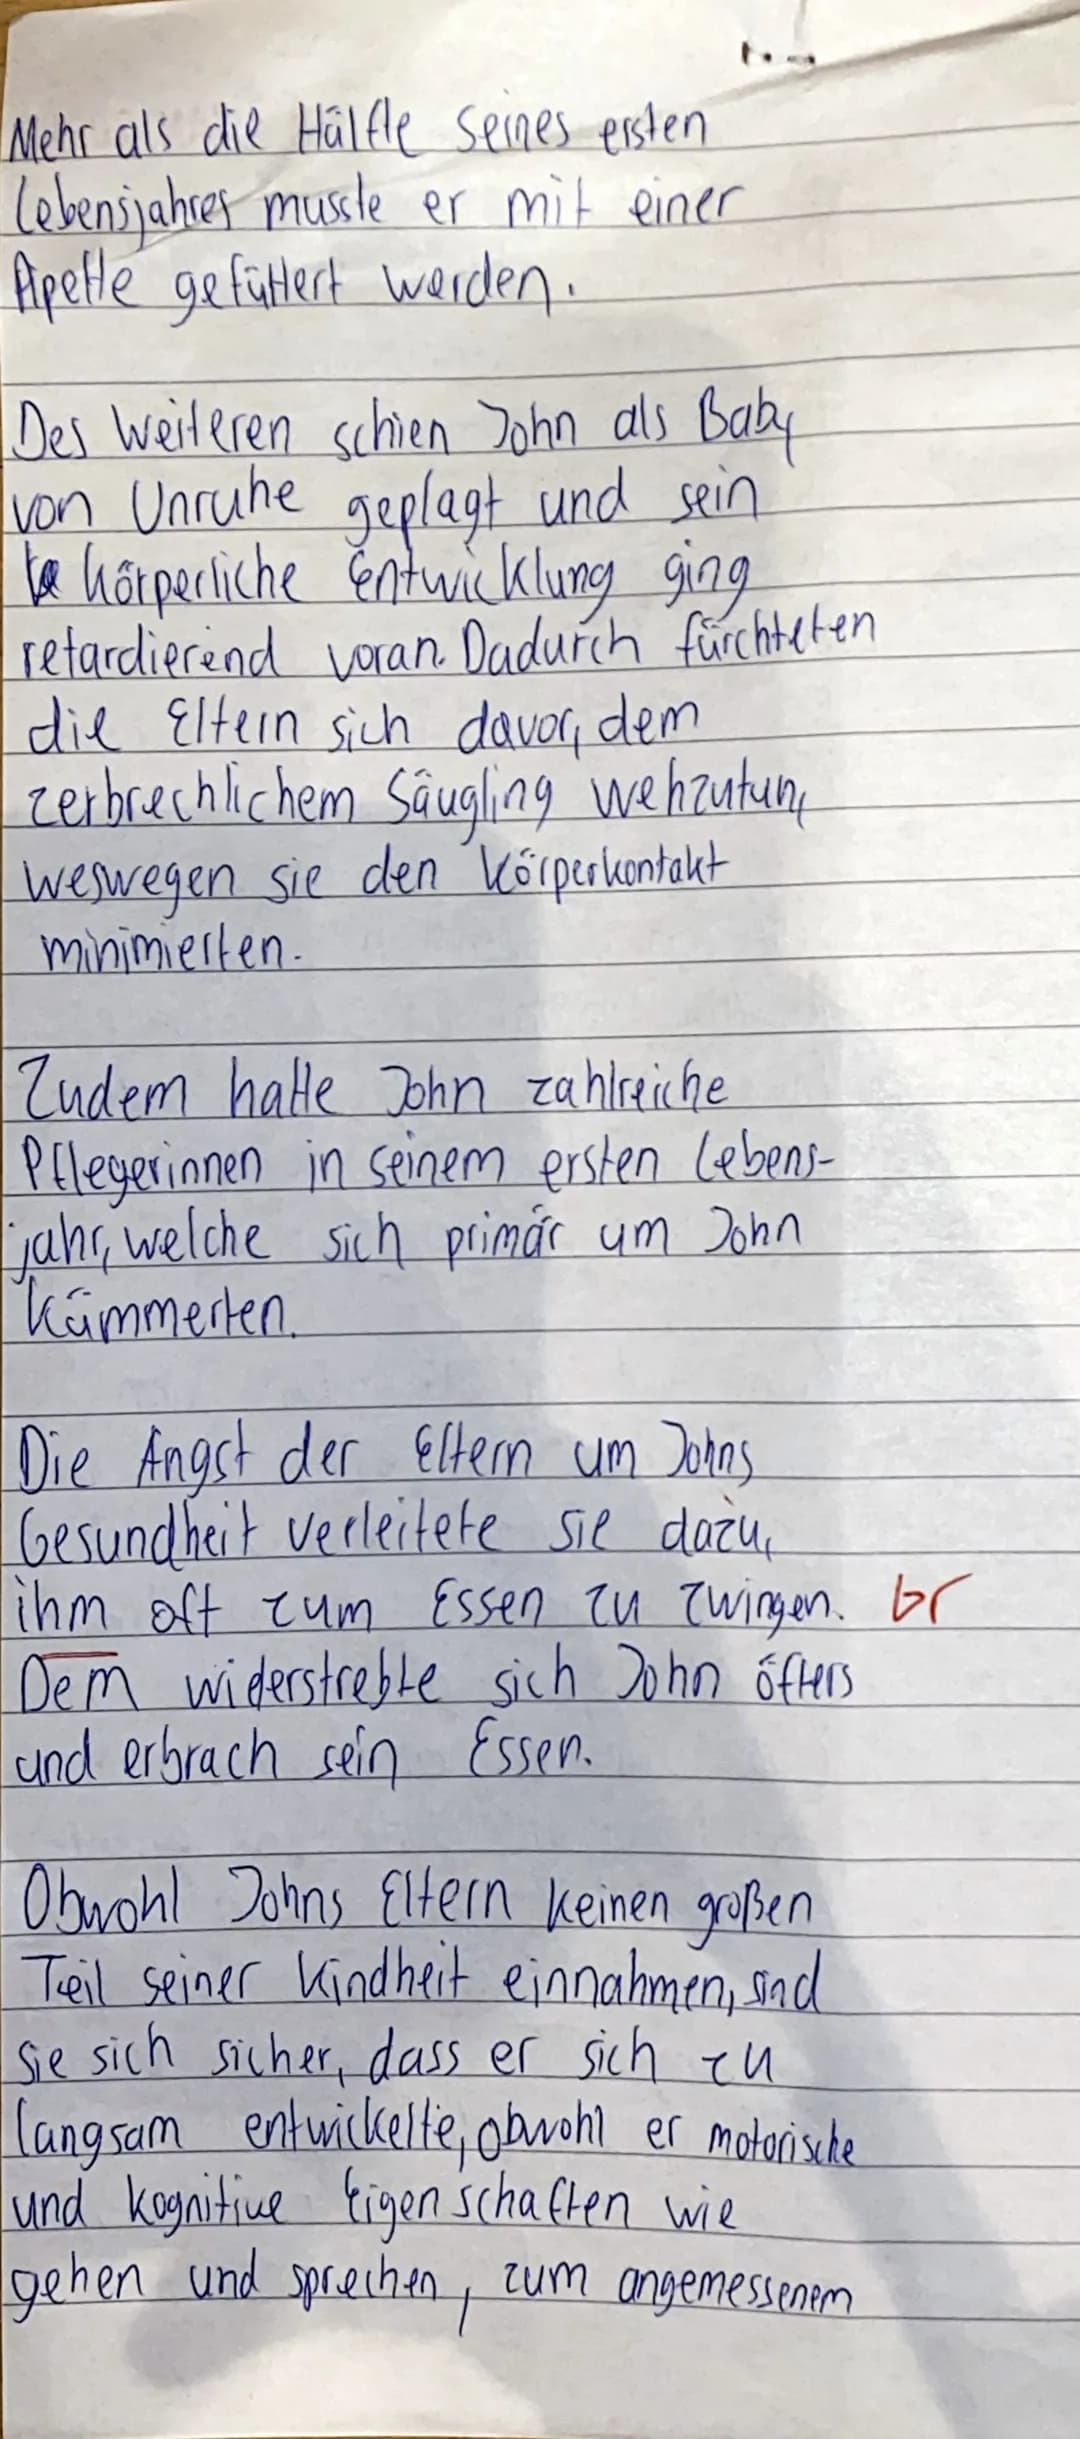 Mehr als die Hälfte seines ersten
Lebensjahres musste er mit einer
Pipette gefüttert werden.
Des weiteren schien John als Baby
von Unruhe geplagt und sein
körperliche Entwicklung ging
retardierend voran. Dadurch fürchteten
die Eltern sich davor, dem
zerbrechlichem Säugling wehzutun,
weswegen sie den Körperkontakt
minimierten.
Zudem hatte John zahlreiche
Pflegerinnen in seinem ersten Lebens-
jahr, welche sich primär um John
kümmerten.
Die Angst der Eltern um Johns
Gesundheit verleitete sie dazu,
ihm oft zum Essen zu zwingen. Gr
Dem widerstrebte sich John öfters
und erbrach sein Essen.
Obwohl Johns Eltern keinen großen
Teil seiner Kindheit einnahmen, sind
sie sich sicher, dass er sich zu
langsam entwickelte, obwohl er motorische
und kognitive Eigenschaften wie
gehen und sprechen, zum angemessenem